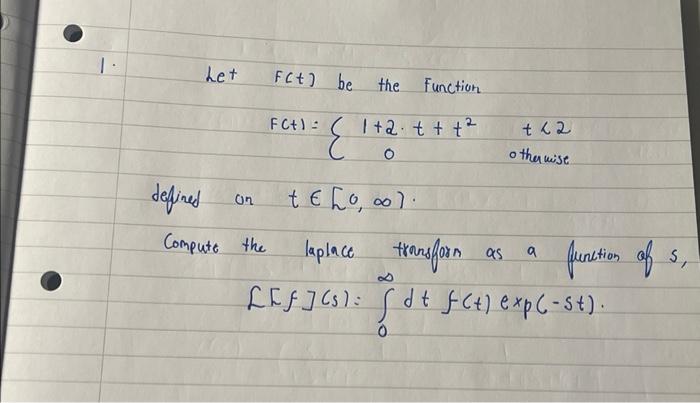 1. Let F(t) be the Function
F(t) = { 1+2· t + t² t < 2
0 otherwise
defined on t ∈ [0, ∞).
Compute the laplace transform as a function of s,
L[f](s) = ∫₀^∞ dt f(t) exp(-st).